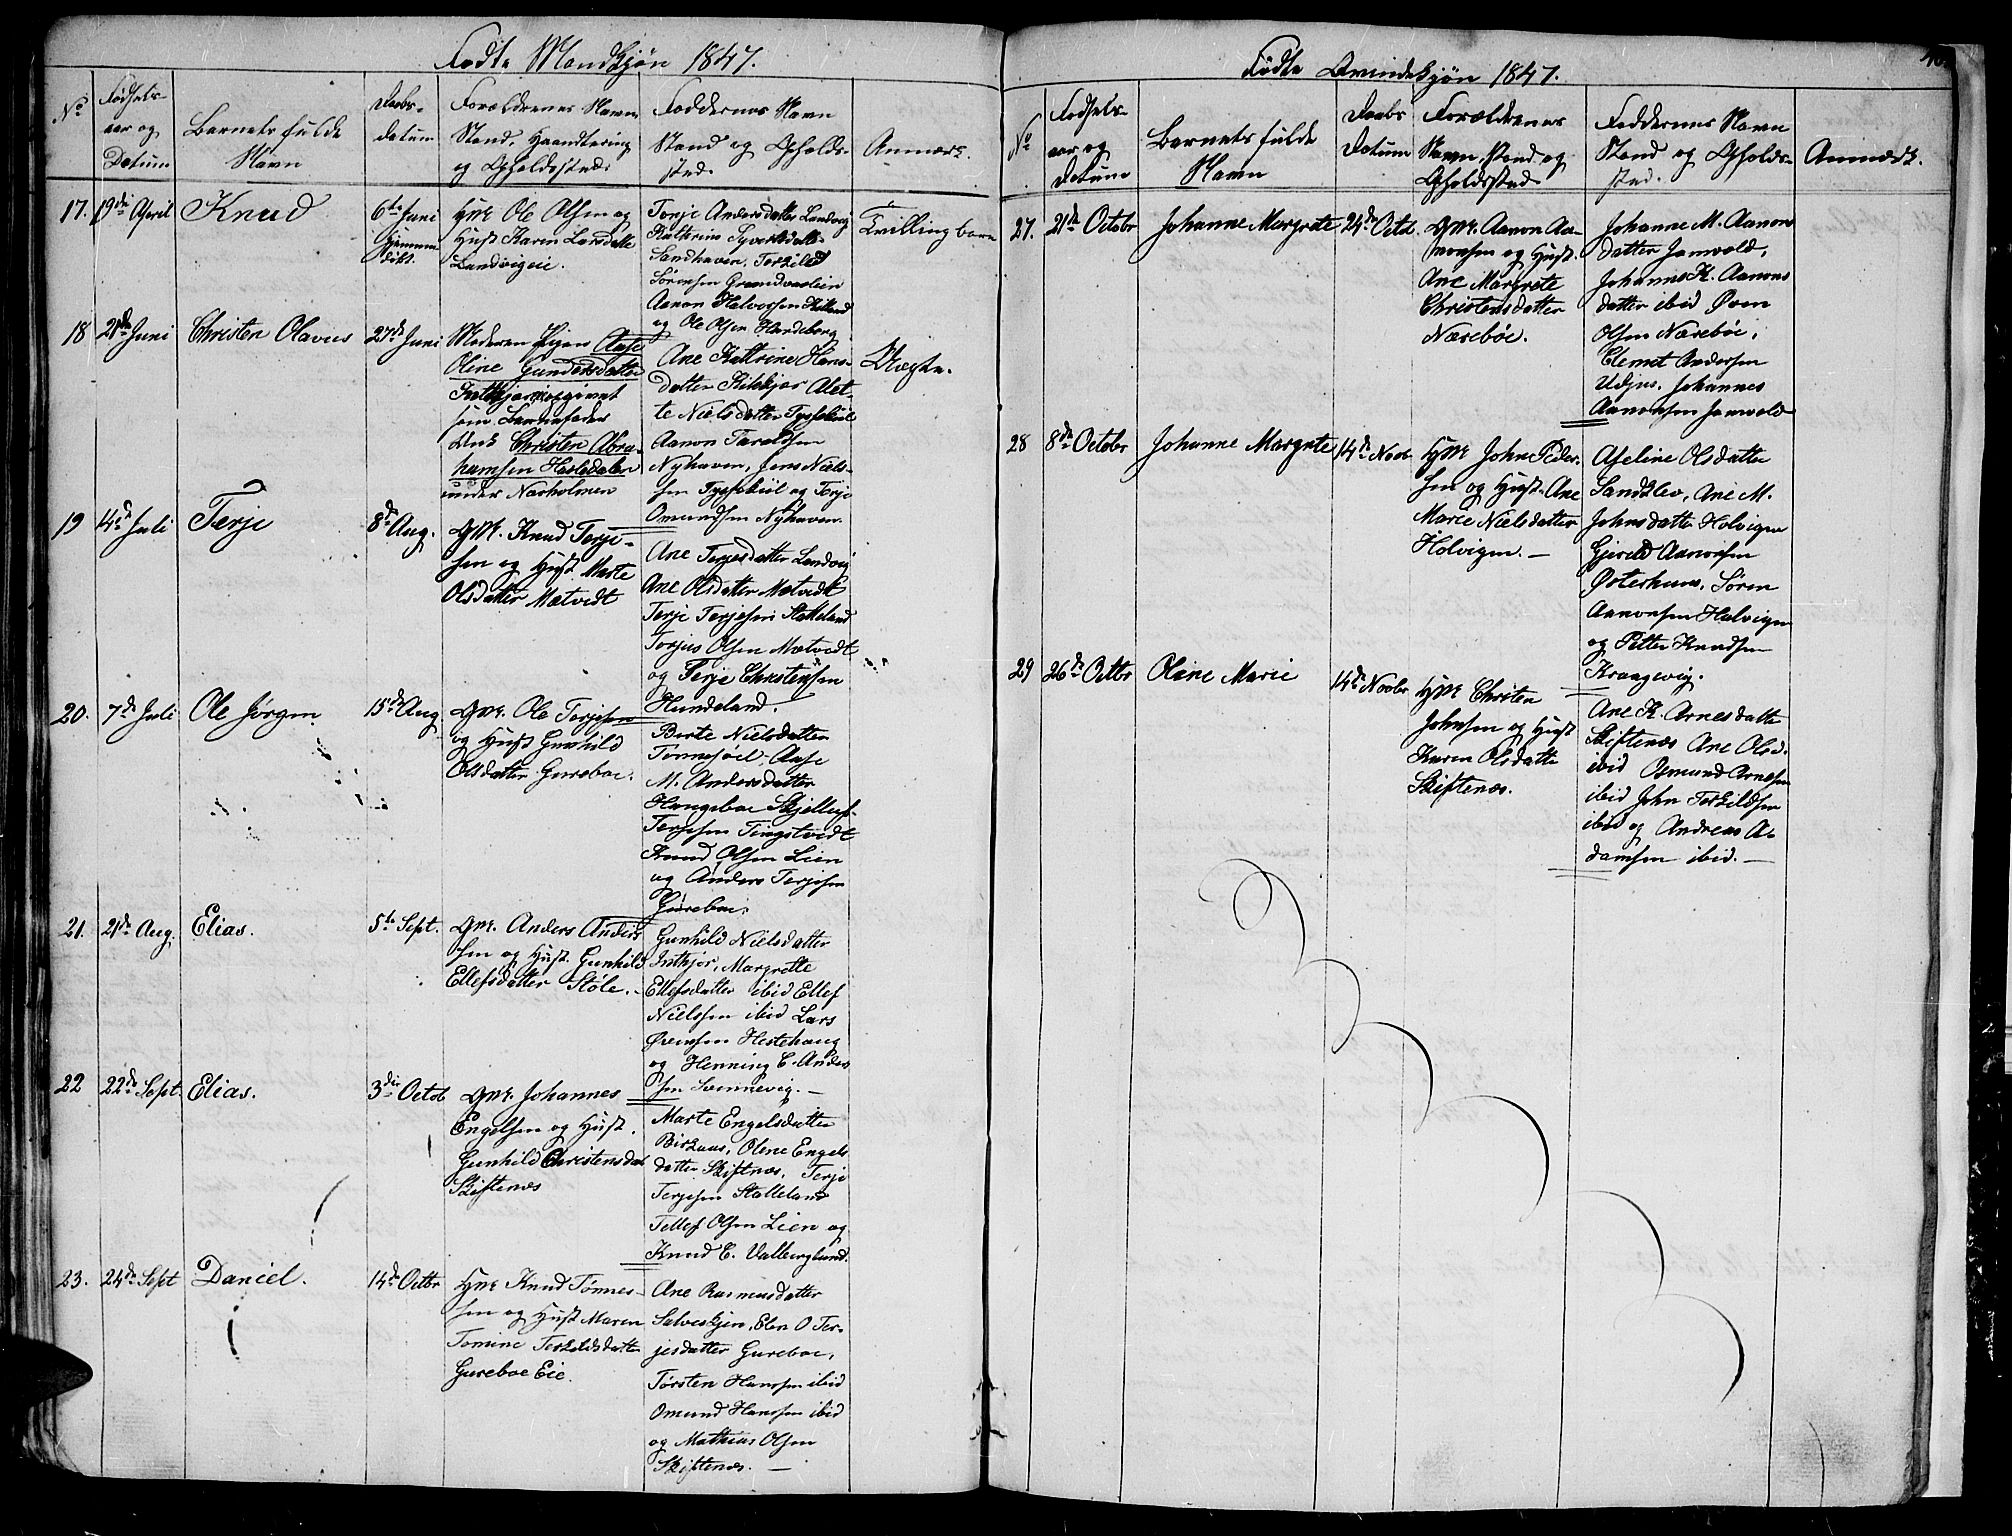 Fødte Mandkjøn 1847.
No
Fødsels-
aar og
Datum
Barnets fulde
Navn
Daabs-
datum
Forældrenes Navn
Stand, Haandtering
og Opholdssted.
Faddernes Navn
Stand og Opholds-
sted.
Anmærk.
17. 19de April Knud
6te Juni
Hjemme
døbt.
HM Ole Olsen og
Hust Karen Larsdatte
Landvigeie.
Torje Andersdatter Landvig
Kathrine
Sandhaven, Terkild
Sørensen
Aanon Halvorsen
og Ole Olsen Hardeberg
Tvillingbarn
18 21de Juni Christen Olavus 27de Juni
Moderen Pigen Aase
Oline Gundersdatter
Inthjør opgivet
som Barnefader
Christen Abra-
hamsen Hasledalen
under Narholmen
Ane Kathrine Hans-
datter Kilekjær Alet-
te Nielsdatter Tyssekiil
Aanon Taraldsen
Nyhaven, Jens Niels-
sen Tyssekiil og Terje
Omundsen Nyhaven.
Uægte.
19 14de Juli Terje 8de Aug.
GM. Knud Terje-
sen og Hust Marte
Olsdatter Mætvedt
Ane Terjesdatter Landvig
Ane Olsdatter Mætvedt
Terje Terjesen Stalleland
Torjus Olsen Mætvedt
og Terje Christensen
Hundeland.
20. 7de Juli Ole Jørgen 15de Aug
GM. Ole Terjesen
og Hust Gunhild
Olsdatter Gureboe.
Berte Nielsdatter
Tønnesøl, Aase
M. Andersdatter
Haugeboe Skjelluf
Terjesen Tingstvedt
Knud Olsen Lien
og Anders Terjesen
Gureboe.
21. 21de Aug. Elias. 5te Sept.
GM. Anders Anders
sen og Hust. Gunhild
Ellefsdatter Støle.
Gunhild Nielsdatter
Inthjør, Margrette
Ellefsdatter ibid Ellef
Nielssen ibid Lars
Øvensen Hestehaug
og Henning C. Anders
sen Svennevig.
22 22de Sept. Elias. 3die Octob
GM. Johannes
Engelsen og Hust.
Gunhild Christensdat
Skiftenes
Marte Engelsdatter
Birkaas, Olene Engels
datter Skiftenes, Terje
Terjesen Stalleland
Tellef Olsen Lien og
Knud C. Valberglund.
23. 24de Sept Daniel. 14de Octbr
HM Knud Tønnes-
sen og Hust Maren
Tomine Terkildsdatte
Gureboe Eie.
Ane Rasmusdatter
Salveskjer, Elen O Ter-
jesdatter Gureboe,
Torsten Hanssen ibid
Omund Hanssen ibid
og Mathias Olsen
Skiftenes.
Fødte Qvindekjøn 1847.
No
Fødsels-
aar og
Datum
Barnets fulde
Navn
Daabs
Datum
Forældrenes
Navn, Stand og
Opholdssted
Faddernes Navn
Stand og Opholds-
sted.
Anmærk.
27. 21de Octobr Johanne Margrete 24de Octob.
GM. Aanon Aa-
nonsen og Hust.
Ane Margrete
Christensdatter
Nærebøe.
Johanne M. Aanons
datter Jamvold,
Johanne K. Aanons
datter ibid Øven
Olsen Nærebøe,
Clemet Andersen
Udjus, Johannes
Aanonsen Jamvold
28 8de Octobr Johanne Margrete 14de Novb
HM John Peder-
sen og Hust. Ane
Marie Nielsdatter
Holvigen.
Aseline Olsdatter
Sandklev, Ane M.
Johnsdatte Holvigen
Gjeruld Aanonsen
Østerhuus, Søren
Aanonsen Holvigen
og Petter Knudsen
Kraagevig.
29 26de Octbr Oline Marie 14de Novbr
HM Christen
Johnsen og Hust
Karen Olsdatte
Skiftenes.
Ane K. Arnesdatte
Skiftenes Ane Olsd.
ibid Osmund Arnesen
ibid John Terkildsen
ibid og Andreas A-
damsen ibid.